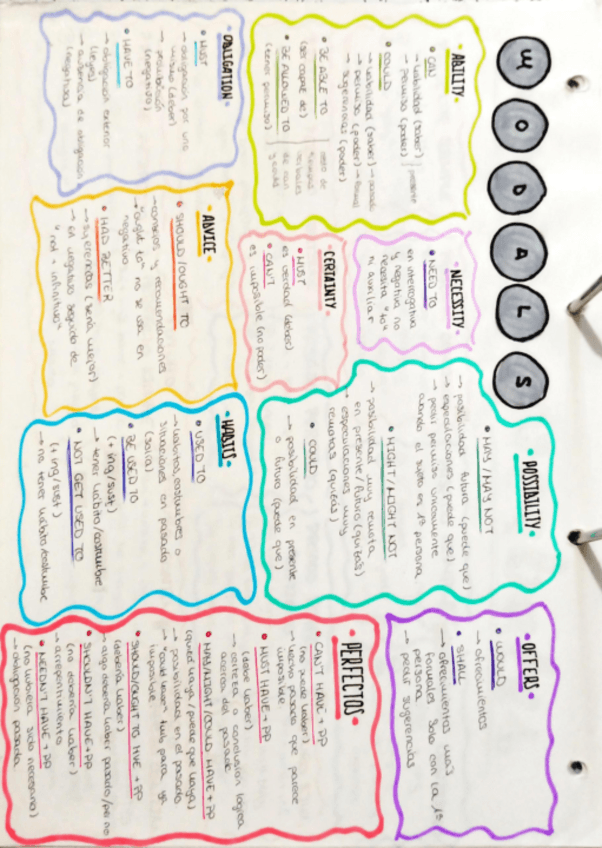 MODALS
·ABILITY·
• CAN
→ habilidad (saber) | presente
→ permiso (poder)
• COULD
→ habilidad (saber) → pasado
→ permiso (poder) → formal
→ sugerencias (poder)
• BE ABLE TO
(ser capaz de)
• BE ALLOWED TO
(tener permiso)
resto de
tiempos
verbales
de can
y could
·NECESSITY·
• NEED TO
en interrogativa
y negativa no
necesita "to"
ni auxiliar
·POSSIBILITY·
• MAY / MAY NOT
→ posibilidad futura (puede que)
→ especulaciones (puede que)
→ pedir permiso únicamente
cuando el sujeto es 1ª persona
• MIGHT / MIGHT NOT
→ posibilidad muy remota
en presente / futuro (quizás)
* especulaciones muy
remotas (quizás)
• COULD
→ posibilidad en presente
o futuro (puede que)
·OFFERS·
• WOULD
→ ofrecimientos
• SHALL
→ ofrecimientos más
formales solo con la 1ª
persona
→ pedir sugerencias
·OBLIGATION·
• MUST
→ obligación por uno
mismo (deber)
→ prohibición
(negativa)
• HAVE TO
→ obligación exterior
(leyes)
→ ausencia de obligación
(negativa)
·ADVICE·
• SHOULD / OUGHT TO
→ consejos y recomendaciones
→ "ought to" no se usa en
negativo
• HAD BETTER
→ sugerencias (sería mejor)
→ en negativo seguido de
"not + infinitivo"
·CERTAINTY·
• MUST
es verdad (deber)
• CAN'T
es imposible (no poder)
·HABITS·
• USED TO
→ hábitos, costumbres o
situaciones en pasado
(solía)
• BE USED TO
→ tener hábito/costumbre
(+ ing/sust)
• NOT GET USED TO
(+ ing/sust)
→ no tener hábito/costumbre
·PERFECTOS·
• CAN'T HAVE + PP
(no puede haber)
→ hecho pasado que parece
imposible
• MUST HAVE + PP
(debe haber)
→ certeza o conclusión lógica
acerca del pasado
• MAY/MIGHT/COULD HAVE + PP
(quizá haya / puede que haya)
→ posibilidad en el pasado
→ "could have" tmb para ya
imposible
• SHOULD/OUGHT TO HVE + PP
(debería haber)
→ algo debería haber pasado/pero no
• SHOULDN'T HAVE + PP
(no debería haber)
→ arrepentimientos
• NEEDN'T HAVE + PP
(no hubiera sido necesario)
→ obligación pasada